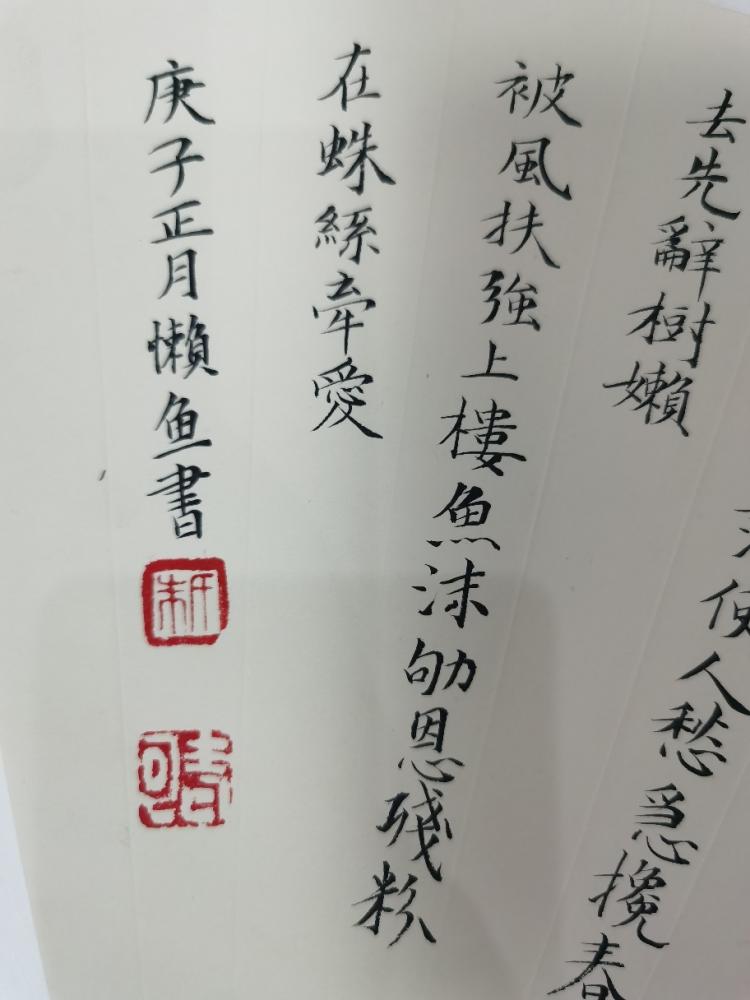 便人愁急挽春
去先辭樹嬾
被風扶強上樓魚沫劬恩殘粉
在蛛絲牽愛
庚子正月懶鱼書